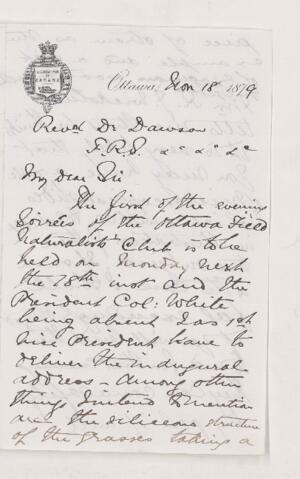 Ottawa, Nov 18 1879
Revd Dr Dawson
F.R.S. &c &c &c
My dear Sir
The first of the evening
Soirées of the Ottawa Field
Naturalists Club is to be
held on Monday next
the 18th inst and the
President Col: White
being absent I as 1st
Vice President have to
deliver the inaugural
address – among other
things I intend to mention
are the siliceous structure
of the grasses taking a